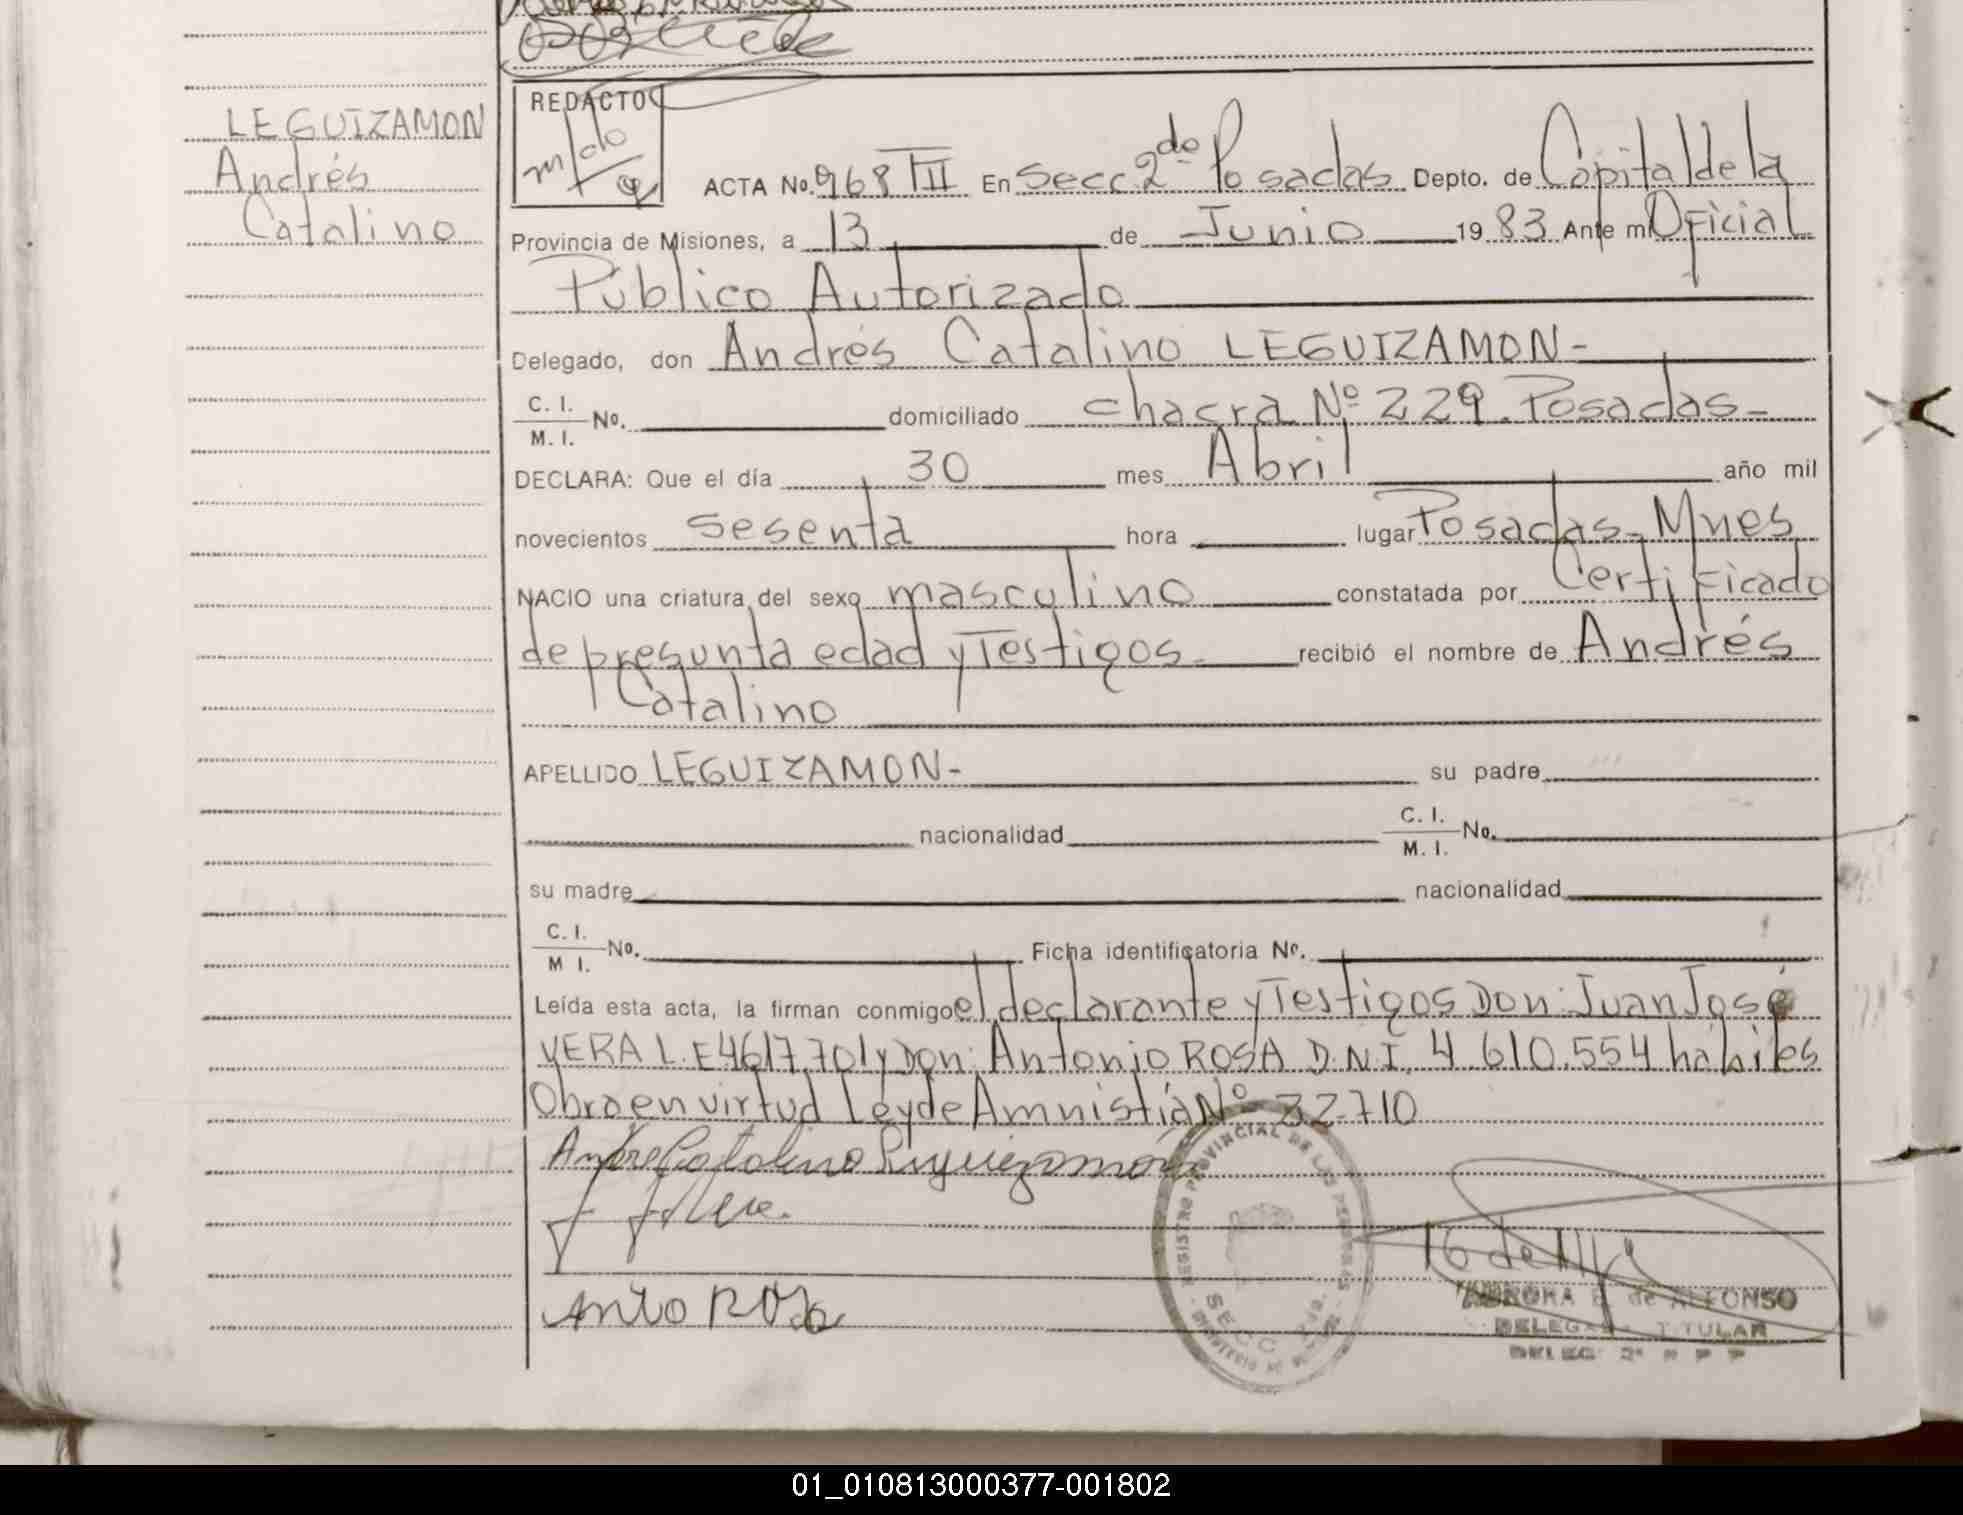 LEGUIZAMON
Andrés
Catalino
REDACTO
ACTA No. 968 TII En Secc. 2da Posadas Depto. de Capital de la
Provincia de Misiones, a 13 de Junio 1983 Ante mi Oficial
Público Autorizado
Delegado, don Andrés Catalino LEGUIZAMON-
C. I. M. I. No. domiciliado chacra Nº 229. Posadas-
DECLARA: Que el día 30 mes Abril año mil
novecientos sesenta hora lugar Posadas-Mnes
NACIO una criatura del sexo masculino constatada por Certificado
de presunta edad y Testigos recibió el nombre de Andrés
Catalino
APELLIDO LEGUIZAMON- su padre
nacionalidad C. I. M. I. No.
su madre nacionalidad
C. I. M I. No. Ficha identificatoria No.
Leída esta acta, la firman conmigo el declarante y Testigos Don: Juan José
VERA L.E 4617.701 y Don: Antonio ROSA D.N.I. 4.610.554 habiles
Obra en virtud Ley de Amnistía Nº 22.710
REGISTRO PROVINCIAL DE LAS PERSONAS
SECC. 2da.
Anto Rosa
AURORA E. de ALFONSO
DELEGADA TITULAR
DELEG. 2ª R P P
01_010813000377-001802